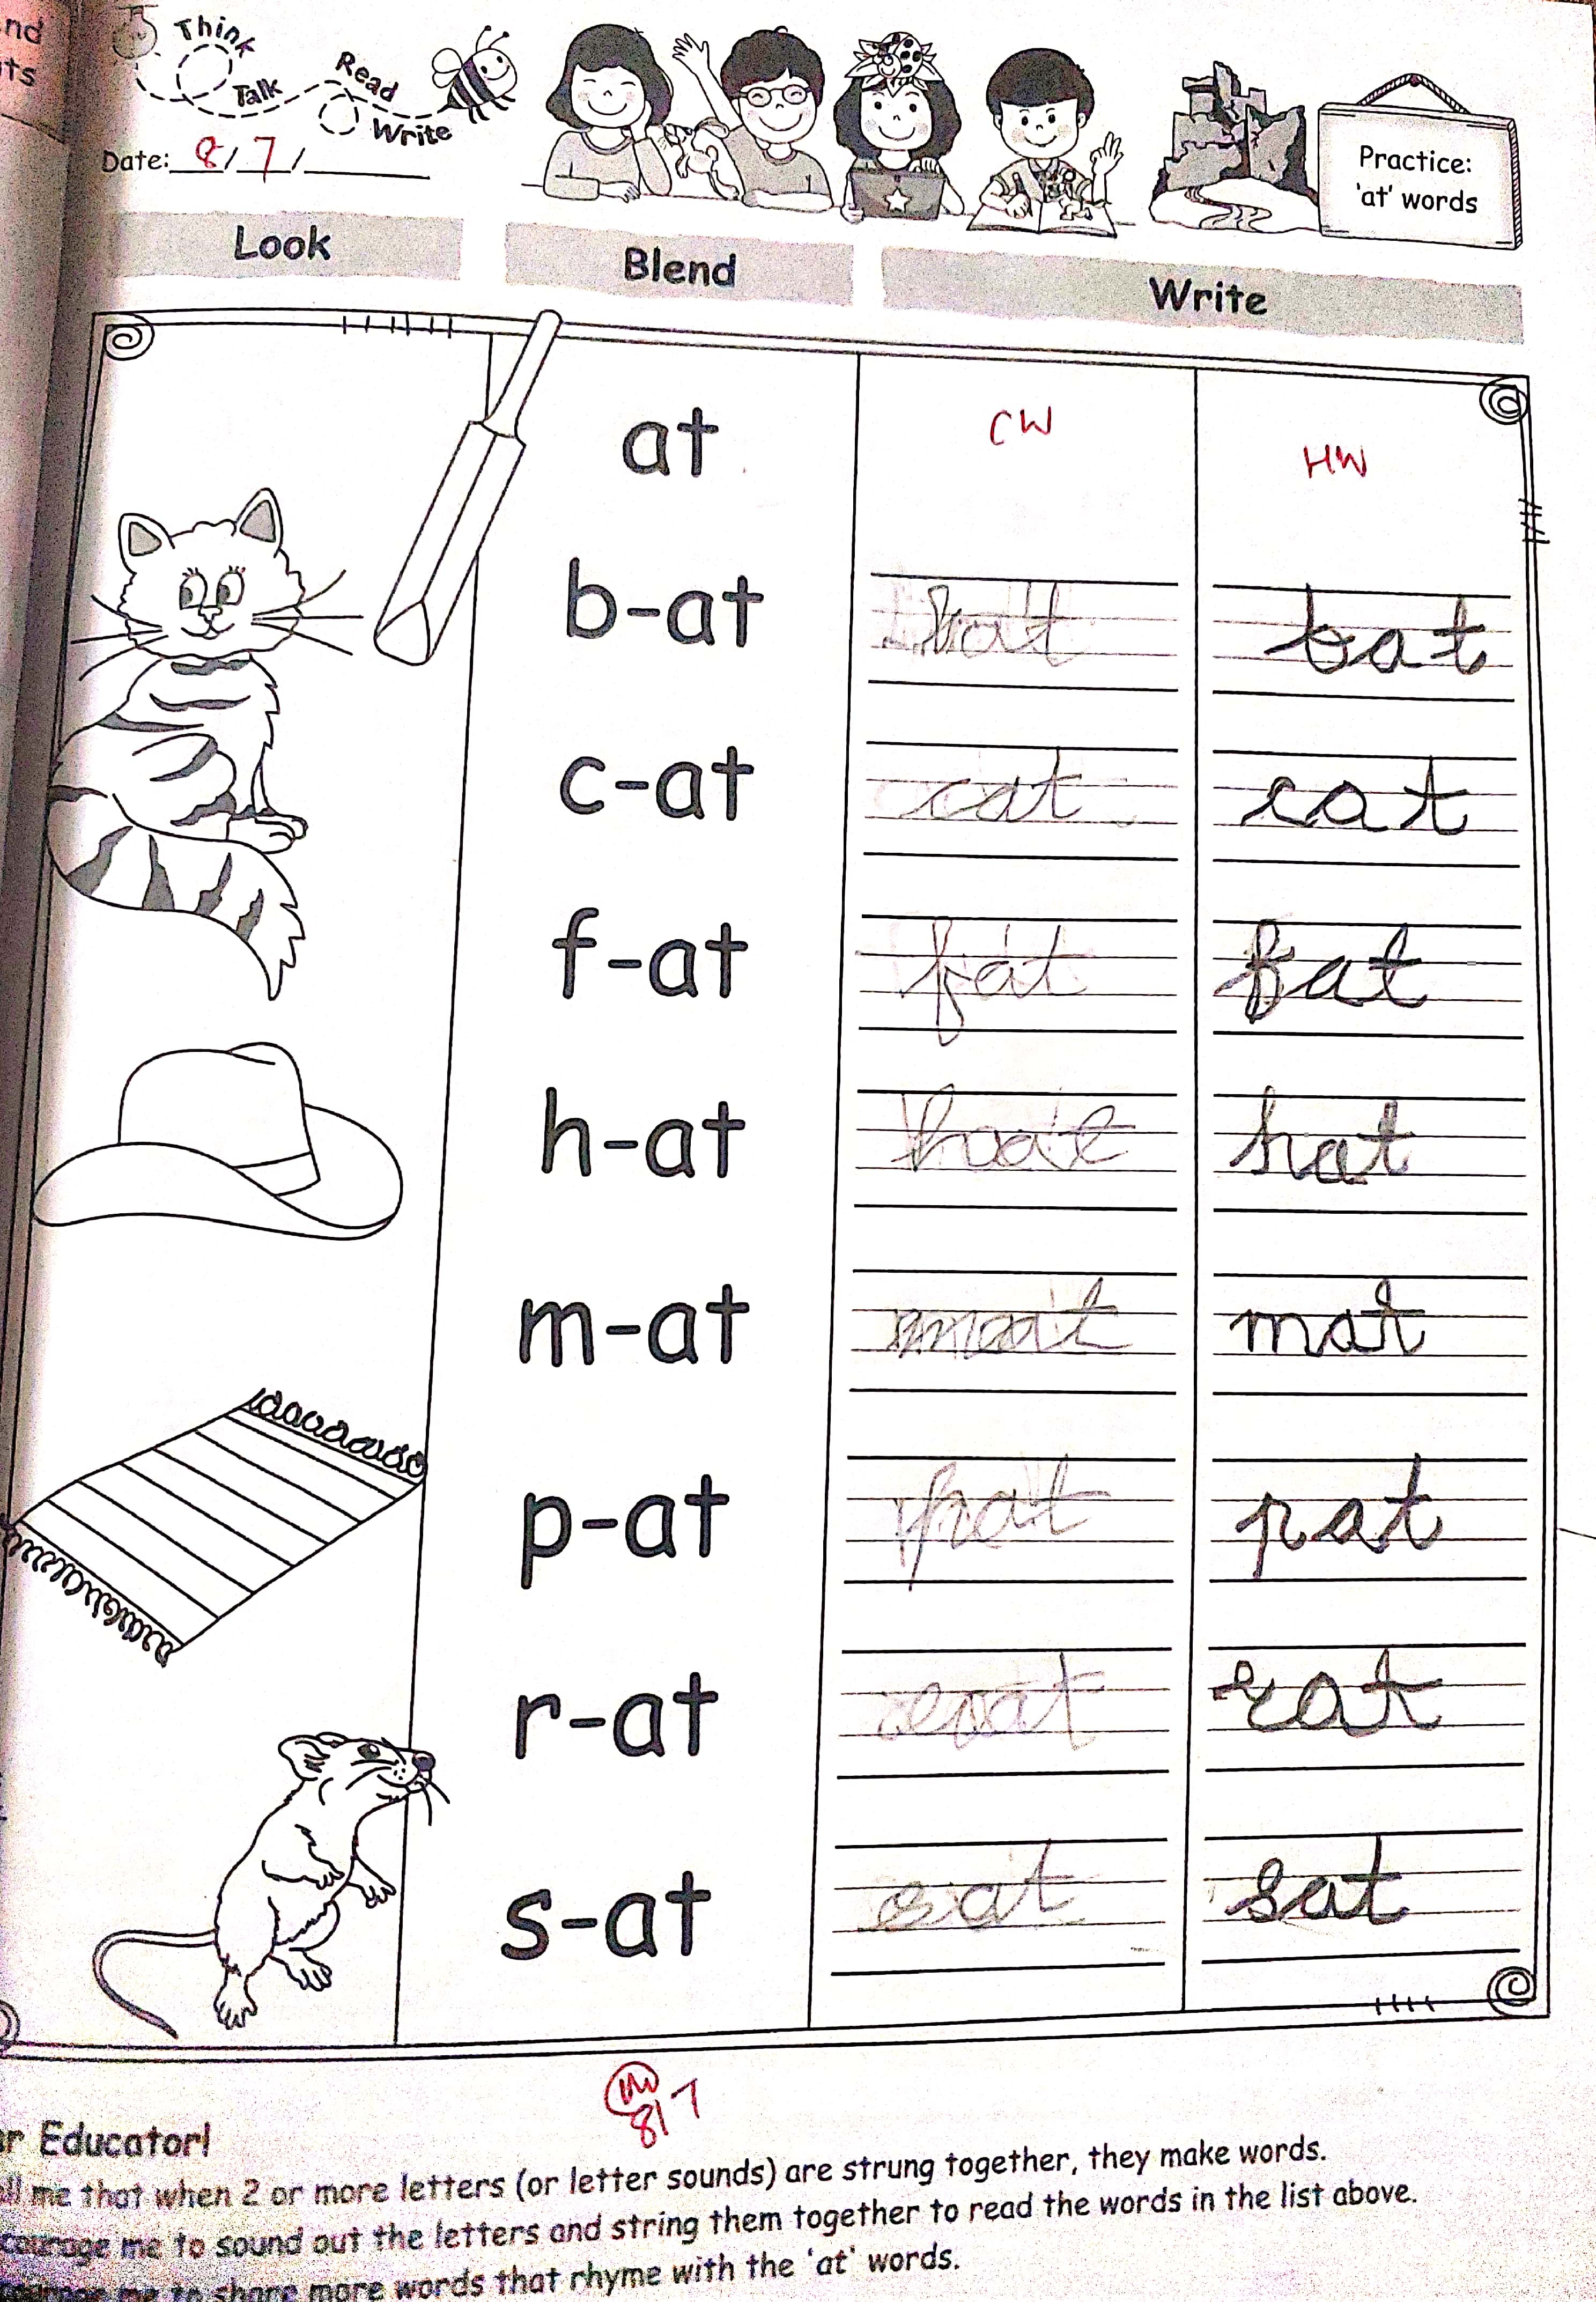 nd
ts
Think
Talk
Read
Write
Date: 8/7/
Practice:
'at' words
Look
Blend
Write
at
CW
HW
b-at
bat
bat
c-at
cat
cat
f-at
fat
fat
h-at
hat
hat
m-at
mat
mat
p-at
pat
pat
r-at
rat
rat
s-at
sat
sat
8/7
r Educator!
ll me that when 2 or more letters (or letter sounds) are strung together, they make words.
courage me to sound out the letters and string them together to read the words in the list above.
me to share more words that rhyme with the 'at' words.